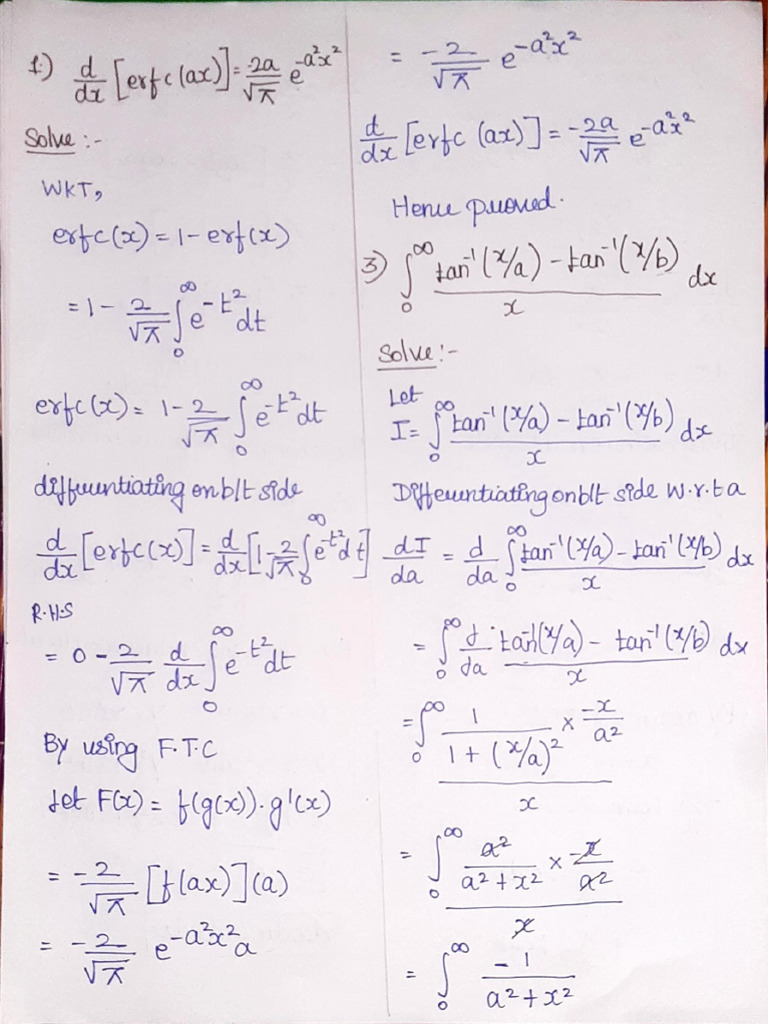 1.) d/dx [erfc(ax)] = 2a/√π e^-a²x²
Solve :-
WKT,
erfc(x) = 1 - erf(x)
= 1 - 2/√π ∫₀^∞ e^-t² dt
erfc(x) = 1 - 2/√π ∫₀^∞ e^-t² dt
differentiating on b/t side
d/dx [erfc(x)] = d/dx [1 - 2/√π ∫₀^∞ e^-t² dt]
R.H.S
= 0 - 2/√π d/dx ∫₀^∞ e^-t² dt
By using F.T.C
Let F(x) = f(g(x)).g'(x)
= -2/√π [f(ax)](a)
= -2/√π e^-a²x² a
= -2/√π e^-a²x²
d/dx [erfc (ax)] = -2a/√π e^-a²x²
Hence proved.
3) ∫₀^∞ tan⁻¹(x/a) - tan⁻¹(x/b) / x dx
Solve :-
Let
I = ∫₀^∞ tan⁻¹(x/a) - tan⁻¹(x/b) / x dx
Differentiating on b/t side w.r.t a
dI/da = d/da ∫₀^∞ tan⁻¹(x/a) - tan⁻¹(x/b) / x dx
= ∫₀^∞ d/da tan⁻¹(x/a) - tan⁻¹(x/b) / x dx
= ∫₀^∞ 1/(1 + (x/a)²) × -x/a² / x
= ∫₀^∞ a²/(a² + x²) × -x/a² / x
= ∫₀^∞ -1/(a² + x²)